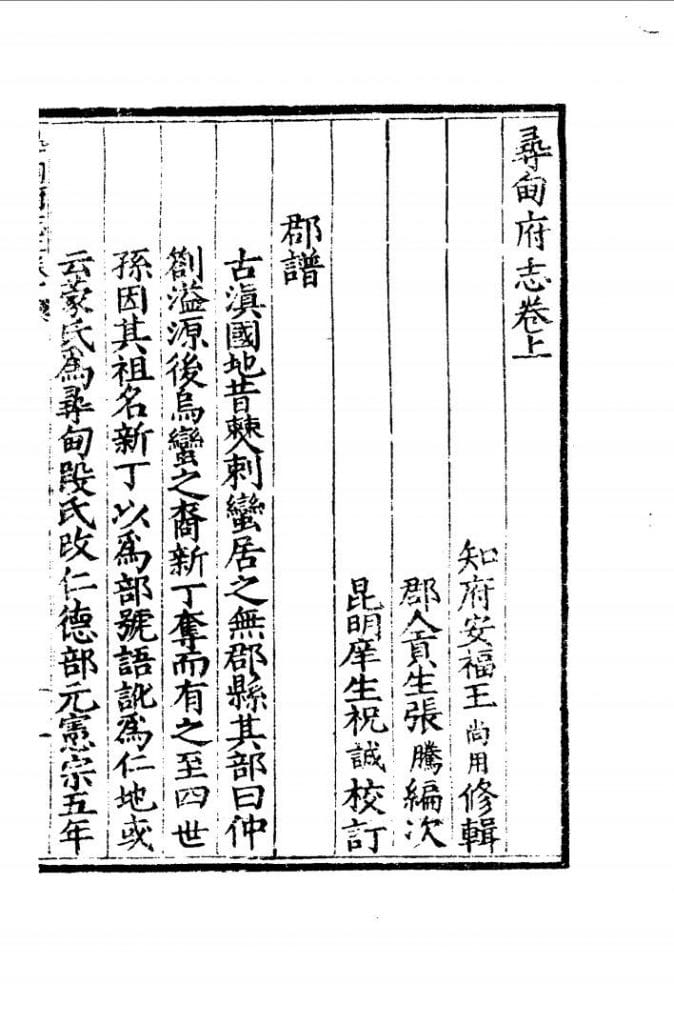 尋甸府志卷上
知府安福王尚用修輯
郡人貢生張騰編次
昆明庠生祝誠校訂
郡譜
古滇國地昔僰剌蠻居之無郡縣其部曰仲
劄溢源後烏蠻之裔新丁奪而有之至四世
孫因其祖名新丁以爲部號語訛爲仁地或
云蒙氏爲尋甸段氏改仁德部元憲宗五年